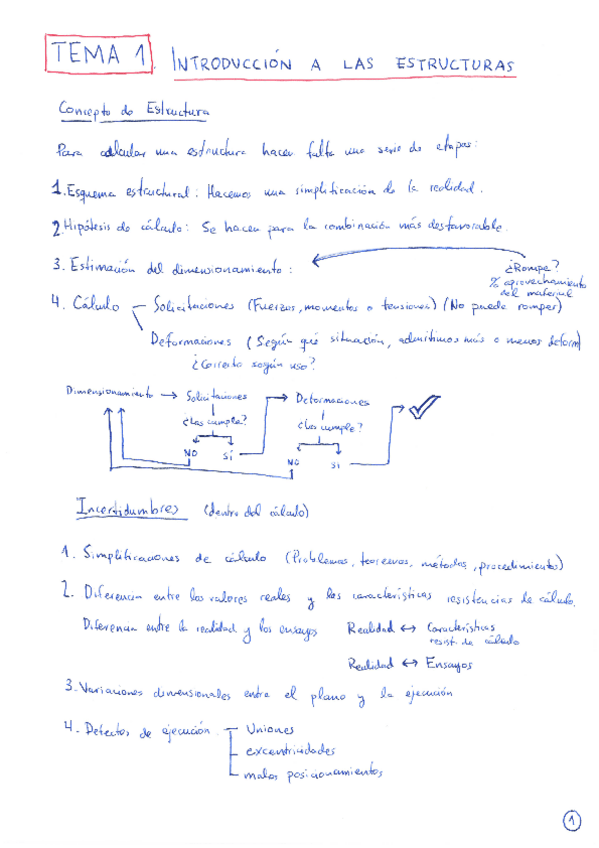 TEMA 1. INTRODUCCIÓN A LAS ESTRUCTURAS
Concepto de Estructura
Para calcular una estructura hacen falta una serie de etapas:
1. Esquema estructural: Hacemos una simplificación de la realidad.
2. Hipótesis de cálculo: Se hacen para la combinación más desfavorable.
3. Estimación del dimensionamiento:
¿Rompe?
% aprovechamiento
del material
4. Cálculo
Solicitaciones (Fuerzas, momentos o tensiones) (No puede romper)
Deformaciones (Según qué situación, admitimos más o menos deform)
¿Correcto según uso?
Dimensionamiento → Solicitaciones → Deformaciones → ✓
¿Las cumple?
¿Las cumple?
NO SÍ
NO SÍ
Incertidumbres (dentro del cálculo)
1. Simplificaciones de cálculo (Problemas, teoremas, métodos, procedimientos)
2. Diferencia entre los valores reales y las características resistencias de cálculo.
Diferencia entre la realidad y los ensayos
Realidad ↔ Características
resist. de cálculo
Realidad ↔ Ensayos
3. Variaciones dimensionales entre el plano y la ejecución
4. Defectos de ejecución
Uniones
excentricidades
malos posicionamientos
1